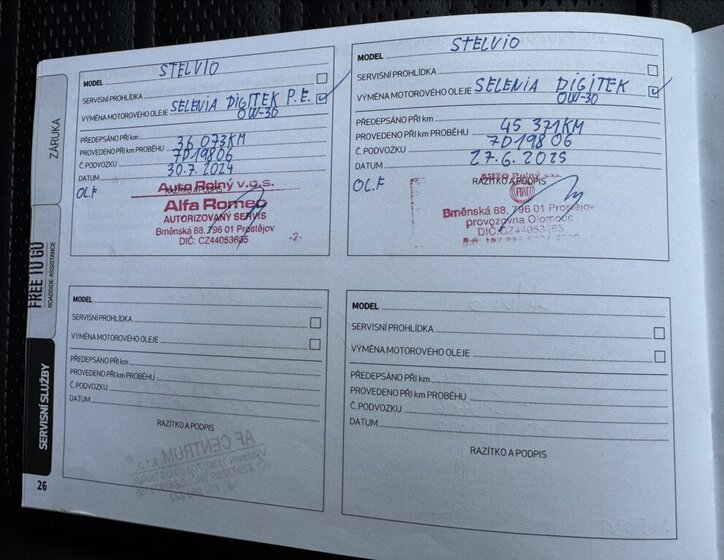 ZÁRUKA
FREE TO GO
ROADSIDE ASSISTANCE
SERVISNÍ SLUŽBY
26
MODEL STELVIO
SERVISNÍ PROHLÍDKA
VÝMĚNA MOTOROVÉHO OLEJE SELENIA DIGITEK P.E.
0W-30
PŘEDEPSÁNO PŘI km
PROVEDENO PŘI km PROBĚHU 36 073KM
Č. PODVOZKU 7D19806
DATUM 30.7.2024
OLF
RAZÍTKO A PODPIS
Auto Rolný v.o.s.
Alfa Romeo
AUTORIZOVANÝ SERVIS
Brněnská 88, 796 01 Prostějov
DIČ: CZ44053685
-2-
MODEL STELVIO
SERVISNÍ PROHLÍDKA
VÝMĚNA MOTOROVÉHO OLEJE SELENIA DIGITEK
0W-30
PŘEDEPSÁNO PŘI km
PROVEDENO PŘI km PROBĚHU 45 371KM
Č. PODVOZKU 7D19806
DATUM 27.6.2025
OL.F
RAZÍTKO A PODPIS
FIAT
Brněnská 88, 796 01 Prostějov
provozovna Olomouc
DIČ: CZ44053685
MODEL
SERVISNÍ PROHLÍDKA
VÝMĚNA MOTOROVÉHO OLEJE
PŘEDEPSÁNO PŘI km
PROVEDENO PŘI km PROBĚHU
Č. PODVOZKU
DATUM
RAZÍTKO A PODPIS
AF CENTRUM s.r.o.
MODEL
SERVISNÍ PROHLÍDKA
VÝMĚNA MOTOROVÉHO OLEJE
PŘEDEPSÁNO PŘI km
PROVEDENO PŘI km PROBĚHU
Č. PODVOZKU
DATUM
RAZÍTKO A PODPIS